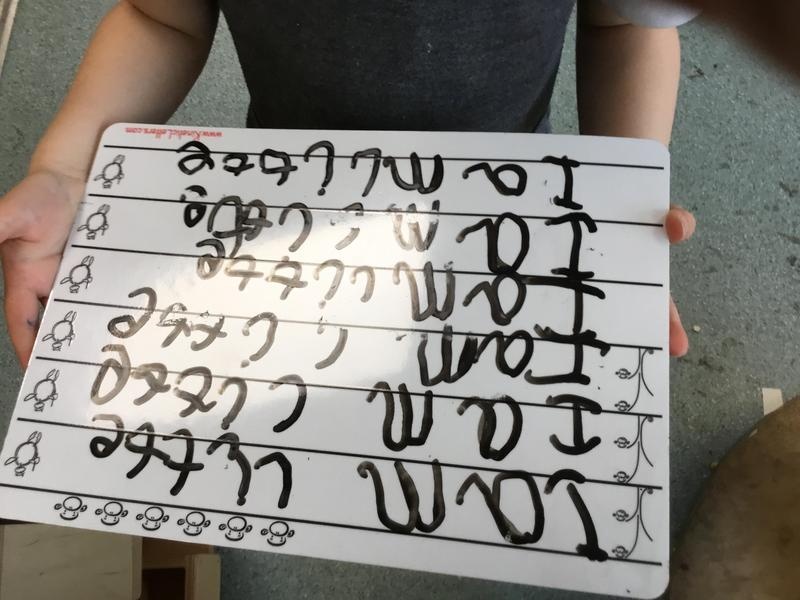 I am litte
I am litte
I am litte
I am litte
I am litte
I am litte
www.KineticLetters.com